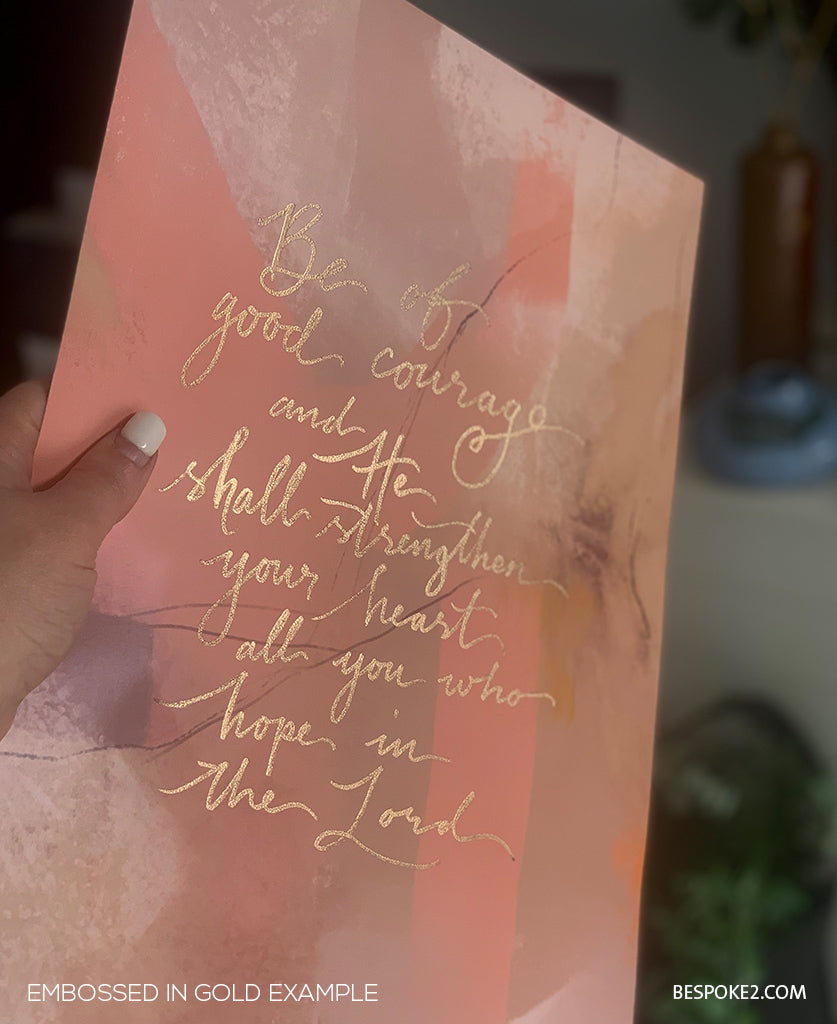 Be of
good courage
and He
shall strengthen
your heart
all you who
hope in
the Lord
EMBOSSED IN GOLD EXAMPLE
BESPOKE2.COM